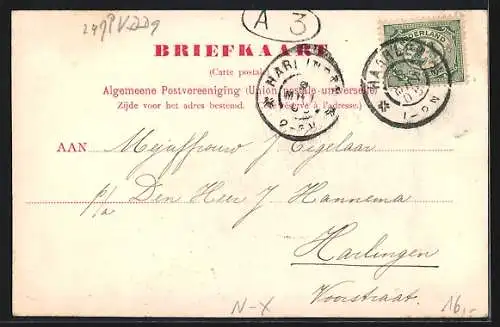 A 3
BRIEFKAART
(Carte postale)
Algemeene Postvereeniging (Union postale universelle)
Zijde voor het adres bestemd. (Réservé à l'adresse.)
NEDERLAND
HARLINGEN
HAARLEM
AAN Mejuffrouw J Tigelaar
p/a Den Heer J Hannema
Harlingen
Voorstraat.
N-X
16,-